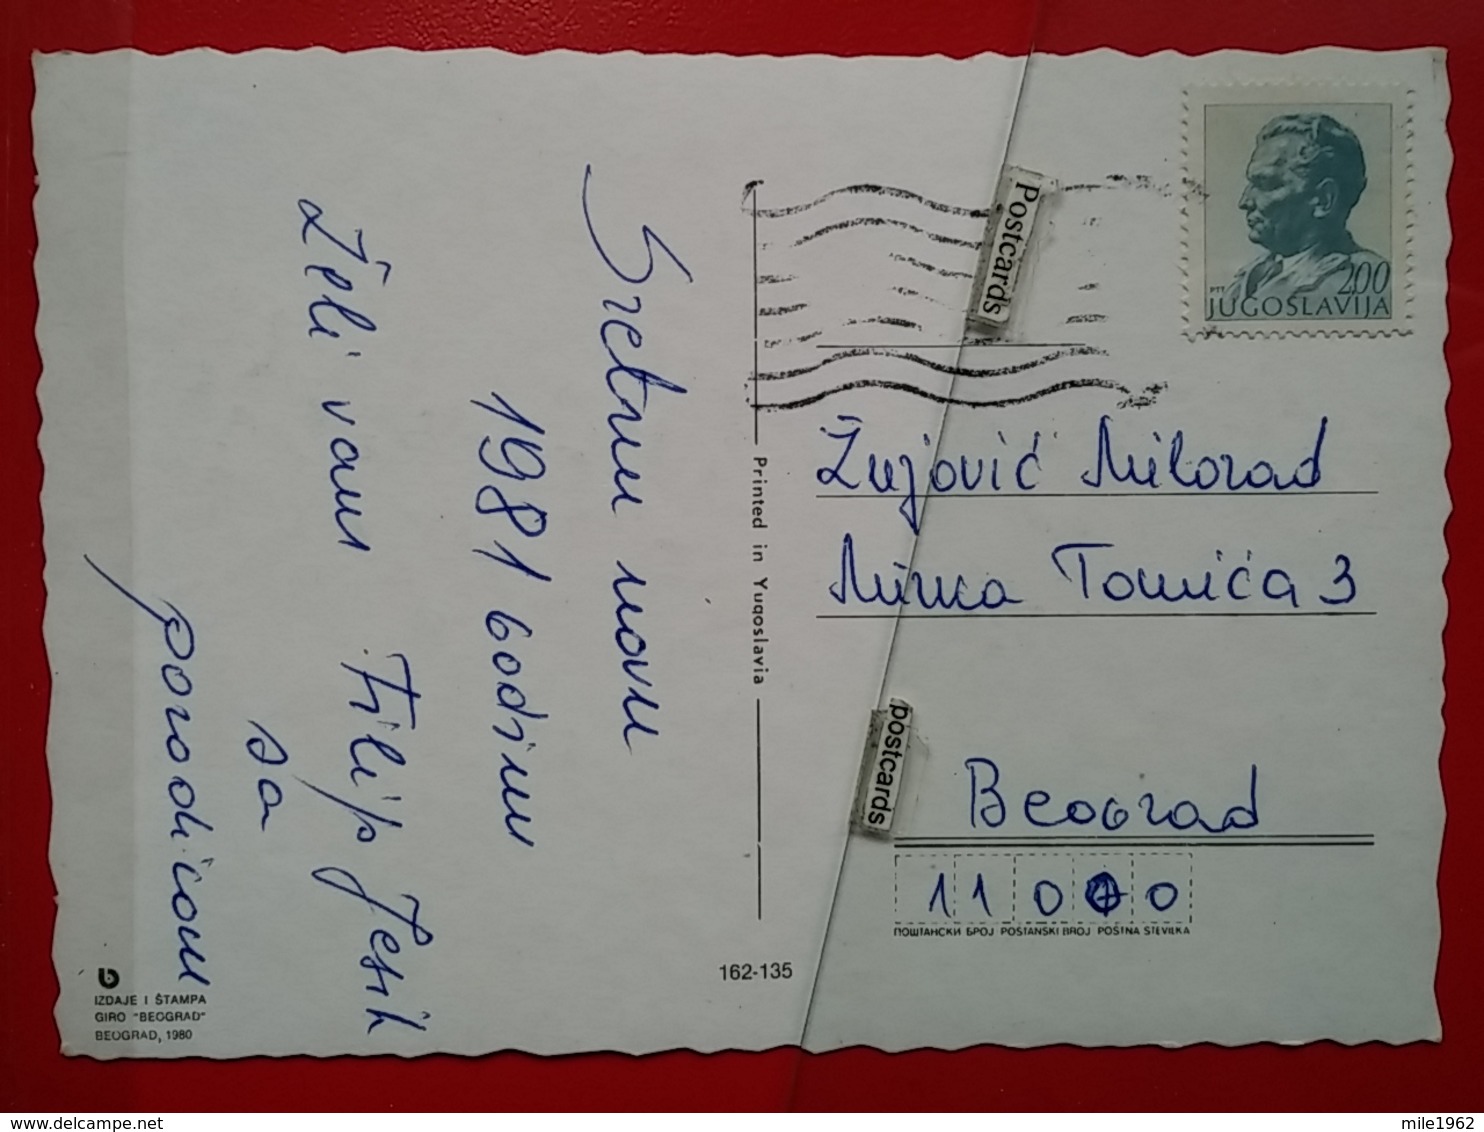 Sretnu novu
1981 godinu
Želi vam Filip Jesih
sa
porodicom
IZDAJE I ŠTAMPA
GIRO "BEOGRAD"
BEOGRAD, 1980
Printed in Yugoslavia
162-135
Postcards
postcards
PTT 2,00
JUGOSLAVIJA
Žujović Milorad
Mirka Tomića 3
Beograd
11000
ПОШТАНСКИ БРОЈ POŠTANSKI BROJ POŠTNA ŠTEVILKA
mile1962